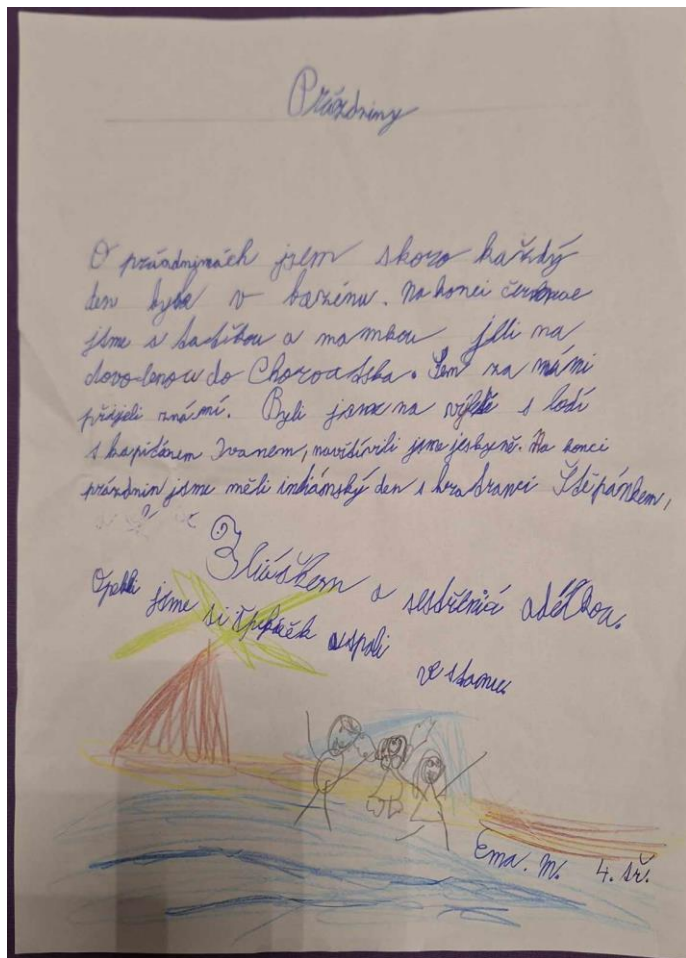 Prázdniny
O prázdninách jsem skoro každý
den byla v bazénu. Na konci července
jsme s taťkou a mamkou jeli na
dovolenou do Chorvatska. Sem za námi
přijeli známí. Byli jsme na výletě s lodí
s kapitánem Ivanem, navštívili jsme jeskyně. Na konci
prázdnin jsme měli indiánský den s bratranci Štěpánkem,
Eliáškem a sestřenicí
Opekli jsme si špekáček a spali
ve stanu.
Ema. M. 4. tř.